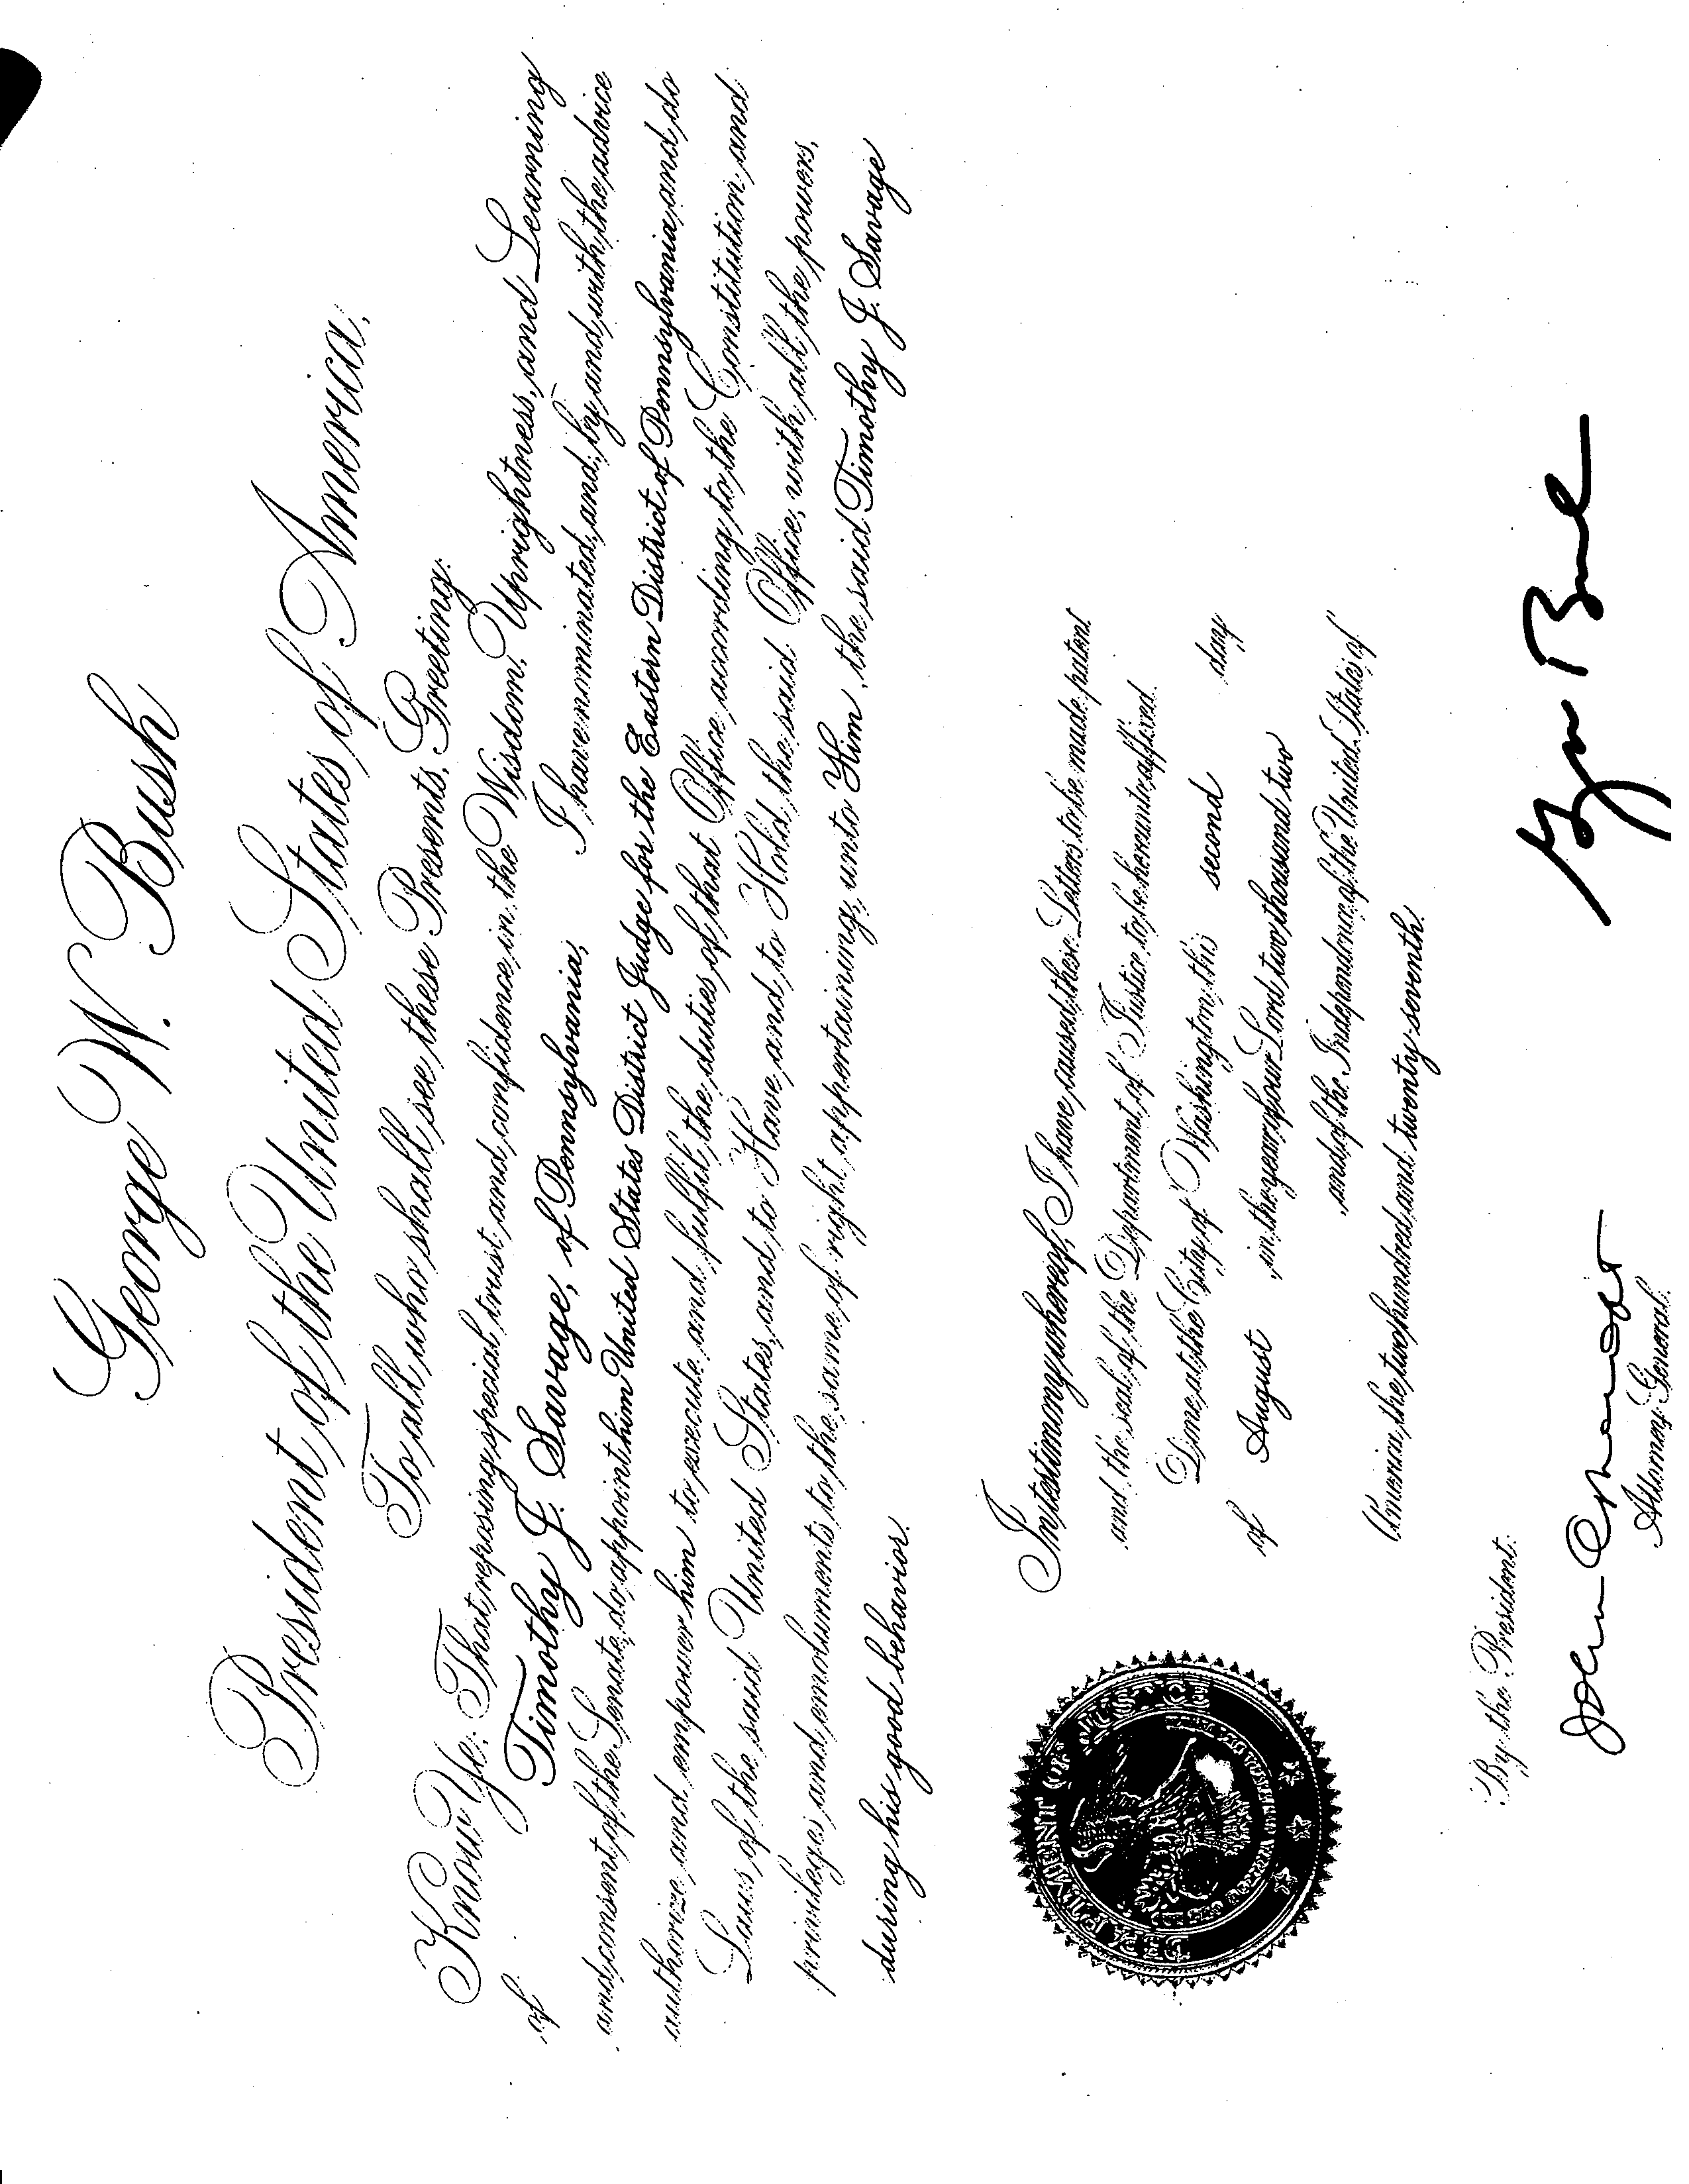 George W. Bush
President of the United States of America,
To all who shall see these Presents, Greeting:
Know Ye; That reposing special trust and confidence in the Wisdom, Uprightness, and Learning
of Timothy J. Savage, of Pennsylvania, I have nominated, and, by and with the advice
and consent of the Senate, do appoint him United States District Judge for the Eastern District of Pennsylvania, and do
authorize and empower him to execute and fulfil the duties of that Office according to the Constitution and
Laws of the said United States, and to Have and to Hold the said Office, with all the powers,
privileges and emoluments to the same of right appertaining, unto Him, the said Timothy J. Savage
during his good behavior.
In testimony whereof, I have caused these Letters to be made patent
and the seal of the Department of Justice to be hereunto affixed.
Done at the City of Washington, this second day
of August in the year of our Lord two thousand two
and of the Independence of the United States of
America the two hundred and twenty-seventh.
DEPARTMENT OF JUSTICE
By the President:
John Ashcroft
Attorney General.